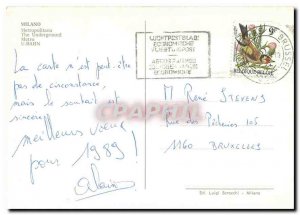 MILANO
Metropolitana
The Underground
Metro
U.BAHN
LUCHTPOSTBLAD
BRUXELLES
BELGIQUE-BELGIE
La carte n'est peut être
pas de circonstance,
mais le souhait est
sincère,
meilleurs voeux
pour 1989!
Alain
M René STEVENS
Rue des Pêcheries 105
1160 BRUXELLES
PRIVATE
Ed. Luigi Bernocchi - Milano